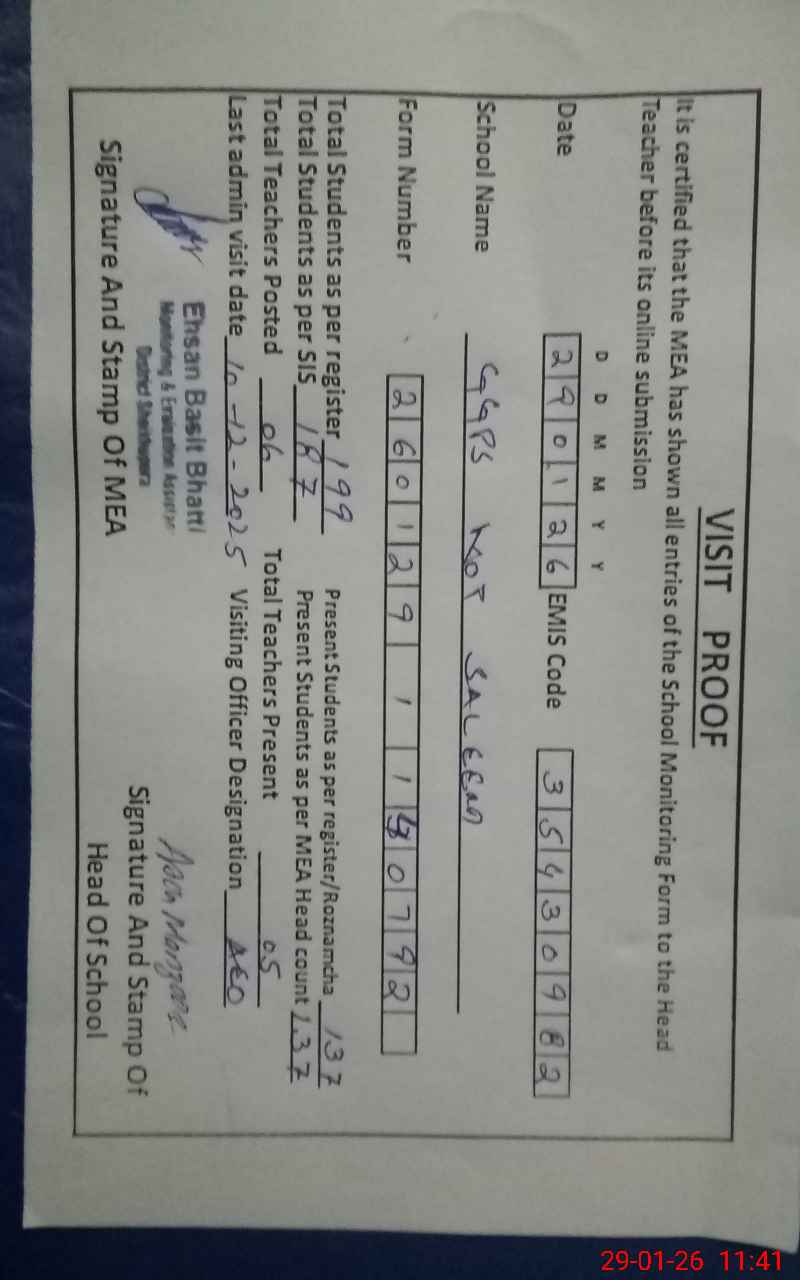 VISIT PROOF
It is certified that the MEA has shown all entries of the School Monitoring Form to the Head
Teacher before its online submission
D D M M Y Y
Date 290126 EMIS Code 35430982
School Name GGPS KOT SALEEM
Form Number 260129 1 1 40792
Total Students as per register 199 Present Students as per register/Roznamcha 137
Total Students as per SIS 187 Present Students as per MEA Head count 137
Total Teachers Posted 06 Total Teachers Present 05
Last admin visit date 10-12-2025 Visiting Officer Designation AEO
Ehsan Basit Bhatti
Monitoring & Evaluation Assistant
District Sheikhupura
Signature And Stamp Of MEA
Signature And Stamp Of
Head Of School
29-01-26 11:41